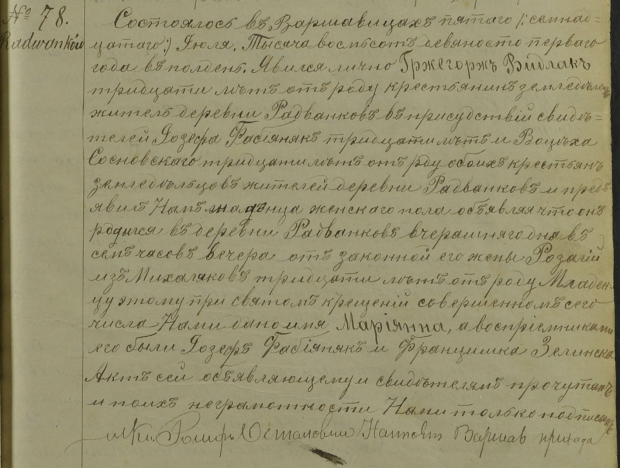 № 78.
Radwanków
Состоялось въ Варшавицахъ пятаго /: семнад=
цатаго:/ Іюля, Тысяча восемьсотъ девяносто перваго
года въ полдень. Явился лично Гржегоржъ Вйдлакъ
тридцати лѣтъ отъ роду крестьянинъ земледѣлецъ
житель деревни Радванковъ въ присудствіи свидѣ=
телей Іозефа Фабіянякъ тридцати лѣтъ и Войцѣха
Сосновскаго тридцати лѣтъ отъ роду обоихъ крестьянъ
земледѣльцовъ жителей деревни Радванковъ и предъ
явилъ Намъ младѣнца женскаго пола объявляя что онъ
родился въ деревни Радванковъ вчерашняго дня въ
семъ часовъ вечера отъ законной его жены Розалій
изъ Михаляковъ тридцати лѣтъ отъ роду. Младен
цу этому при святомъ крещеній совершенномъ сего
числа Нами дано имя Маріянна, а воспріемниками
его были Іозефъ Фабіянякъ и Францишка Зелинска
Актъ сей объявляющему и свидѣтелямъ прочутанъ
и по ихъ неграмотности Нами только подписанъ
Варшав прихода